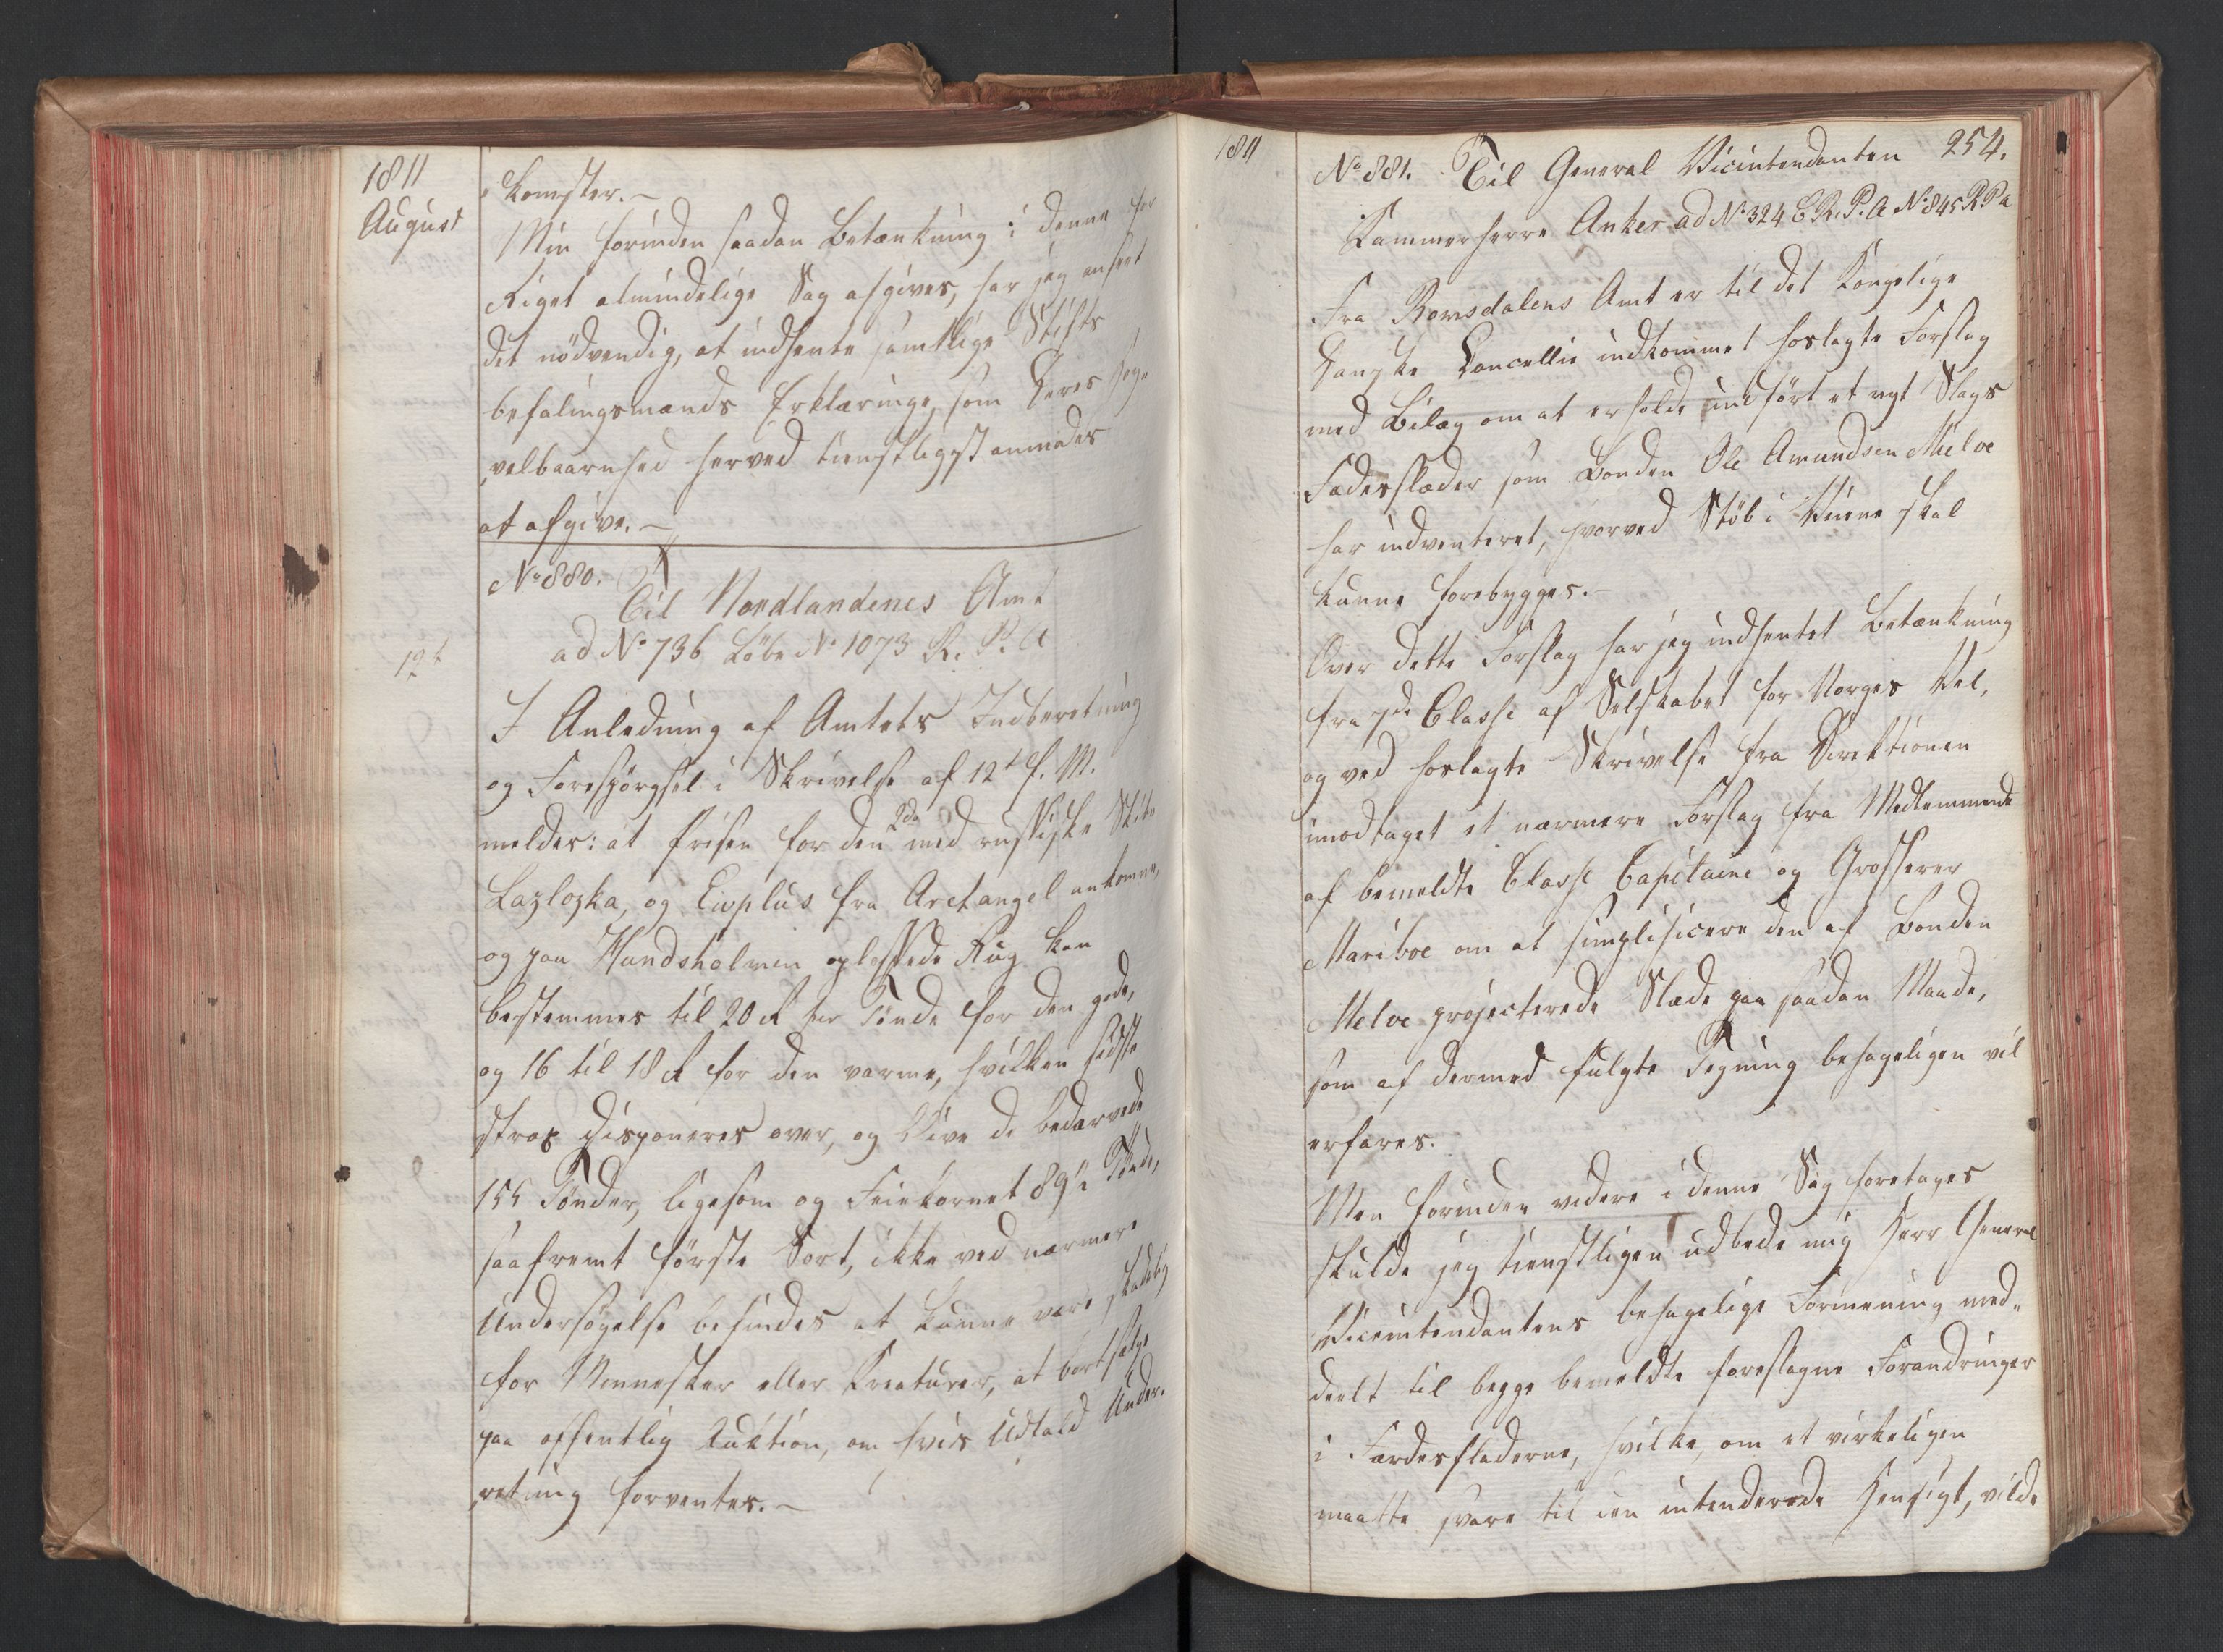 1811
August
komster. -
Min forinden saadan Betænkning i denne for
Riget almindelige Sag afgives, har jeg anseet
det nödvendig, at indhente samtlige Stifts
befalingsmænds Erklæringe, som Deres Høy
velbaarnhed herved tienstligst anmodes
at afgive. -
No 880.
Til Nordlandenes Amt
ad No 736 Löbe No 1073 R. P. A
12t
I Anledning af Amtets Indberetning
og Forespörgsel i Skrivelse af 12t f. M.
meldes: at Prisen for den med 2de russiske Skibe
Lazlozka, og Eivplus fra Archangel ankomne,
og paa Hundsholmen oplossede Rug kan
bestemmes til 20 rd per Tönde for den gode,
og 16 til 18 rd for den varme, hvilken sidste
strax disponeres over, og blive de bedærvede
155 Tönder, ligesom og Feiekornet 89½ Tönde,
saafremt förste Sort, ikke ved nærmere
Undersögelse befindes at kunne være skadelig
for Mennesker eller Kreaturer, at bortsælge
paa offentlig Auktion, om hvis Udfald Under-
retning forventes. -
1811
254.
No 881. Til General Vicintendanten
Kammerherre Anker ad No 324 C R. P. A No 845 R P a
Fra Romsdalens Amt er til det Kongelige
Danske Cancellie indkommet hoslagte Forslag
med Bilag om at erholde indfört et nyt Slags
Færdesslæder som Bonden Ole Amundsen Mielve
har indventeret, hvorved Stöb i Veiene skal
kunne forebygges. -
Over dette Forslag har jeg indhentet Betænkning
fra 7de Classe af Selskabet for Norges Vel,
og ved hoslagte Skrivelse fra Direktionen
imodtaget et nærmere Forslag fra Medlemmerde
af bemeldte Classe Capitaine og Grosserer
Mariboe om at simplificere den af Bonden
Melve projecterede Slæde paa saadan Maade,
som af dermed fulgte Tegning behageligen vil
erfares.
Men forinden videre i denne Sag foretages
skulde jeg tienstligen udbede mig Herr General
Vicintendantens behagelige Formening med-
deelt til begge bemeldte foreslagne Forandringer
i Færdesslæderne, hvilke, om et virkeligen
maatte svare til den intenderede Hensigt, vilde